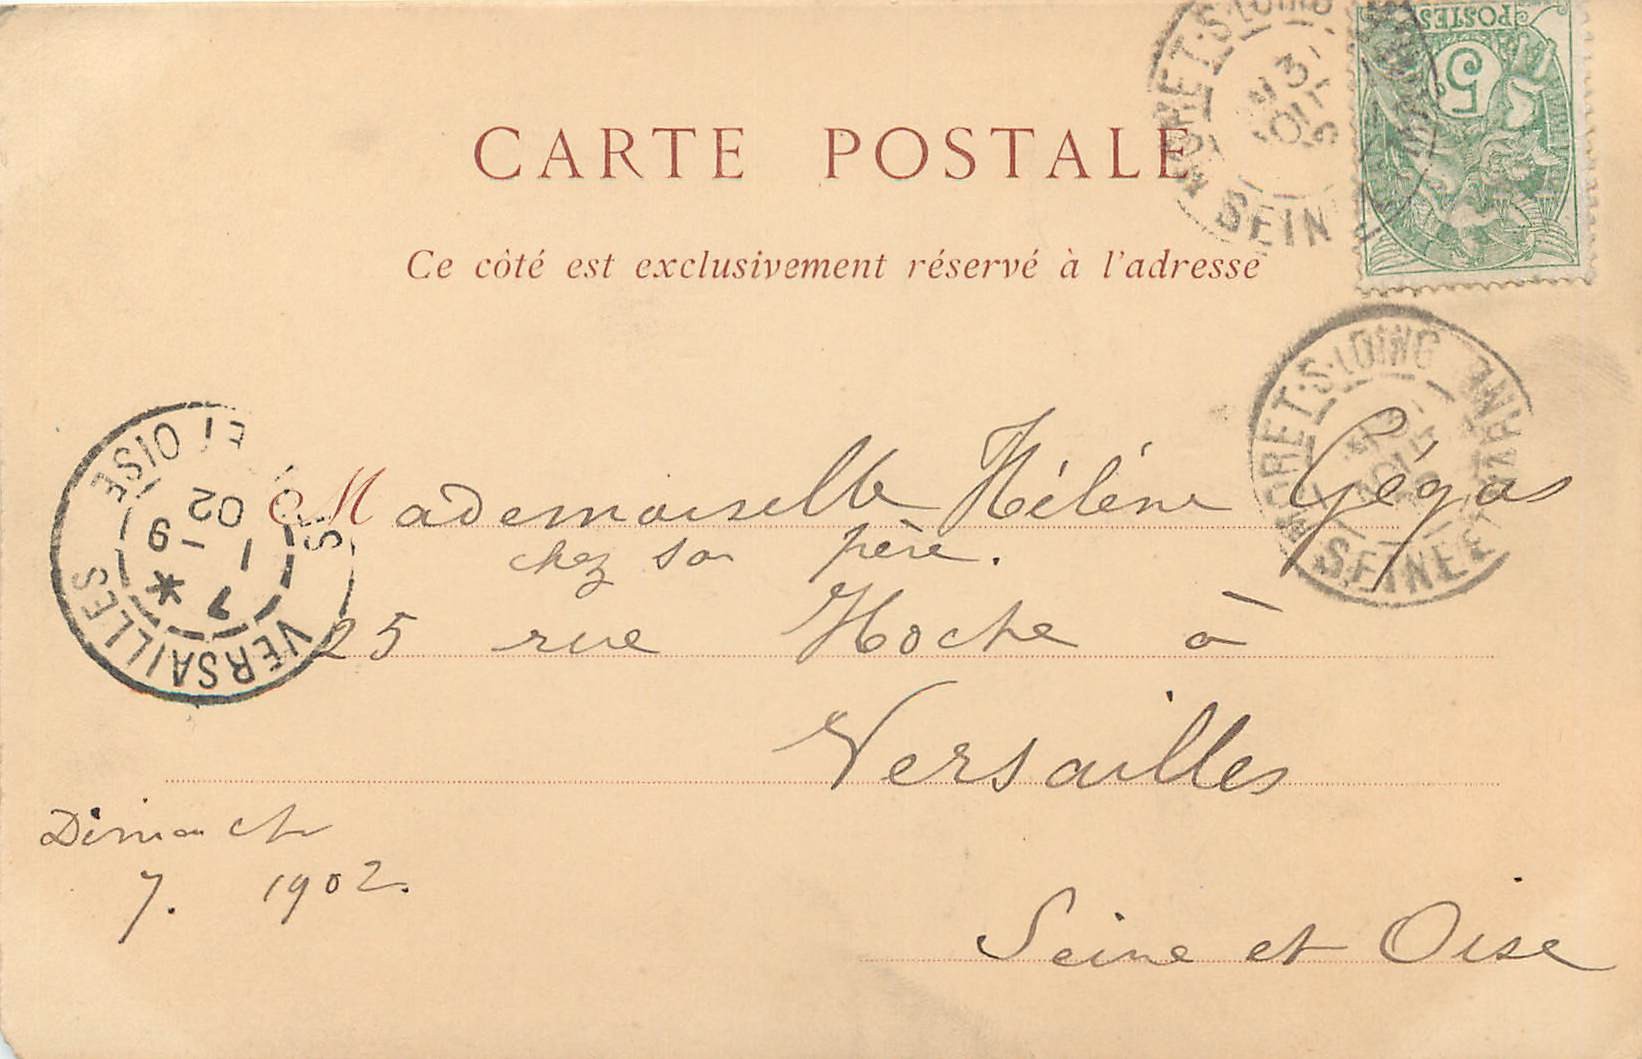 CARTE POSTALE
Ce côté est exclusivement réservé à l'adresse
POSTES
5
MORET-S-LOING
31
AOUT
SEINE
MORET-S-LOING
31
AOUT
02
SEINE ET MARNE
VERSAILLES
S. ET OISE
7
1-9
02
Mademoiselle Hélène Gégas
chez son père.
25 rue Hoche à
Versailles
Seine et Oise
Dimanche
7. 1902.